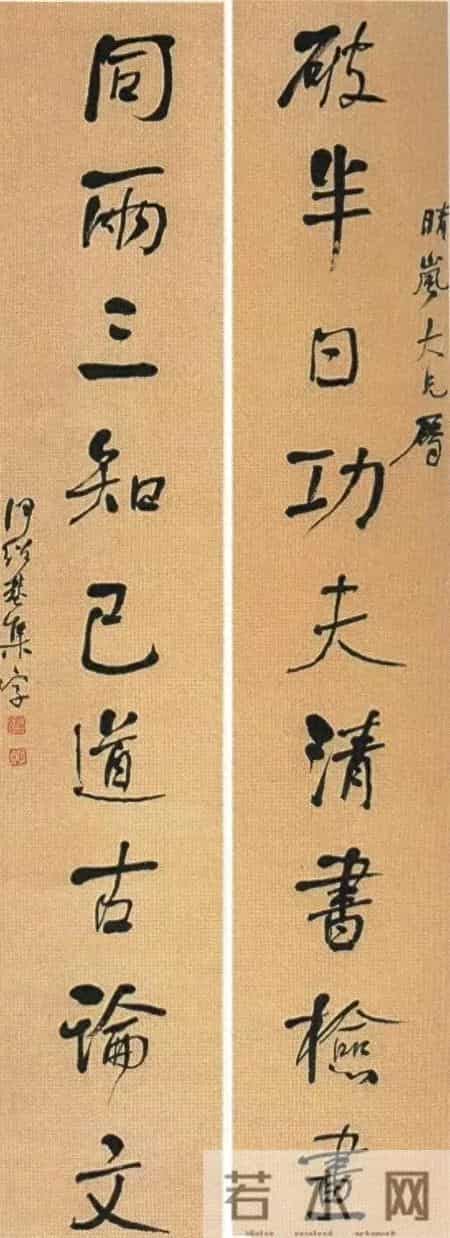 晴嵐大兄屬
破半日功夫清書檢畫
同兩三知己道古論文
何紹基集字
若 网